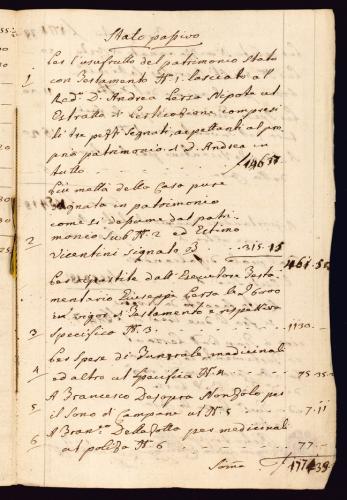 Stato passivo
1 Per l'usufrutto del patrimonio stato
con Testamento N.º 1 lasciato al
Red.º D. Andrea Lerso Nepote ut
Estratto di compresi
li tre pezzi segnati, aspettanti al pro
prio patrimonio di D. Andrea in
tutto f 146 37
Più metà della Casa pure
segnata in patrimonio
come si desume dal patri-
2 monio sub N.º 2 ed
Vicentini signato B 315.15
461.52
Per dall'Esecutore Testa-
mentario Giuseppe Lerso 
in vigor di Testamento e rispettiva
3 Specifica N.º 3 1130.-
Per Spese di Funerale, medicinali
4 ed altro ut Specifica N.º 4 75.35
A Francesco Dasopra Nonzolo per
5 il Sono di Campane ut N.º 5 7.11
A Fran.co per medicinali
6 ut polizza N.º 6 77.-
Soma